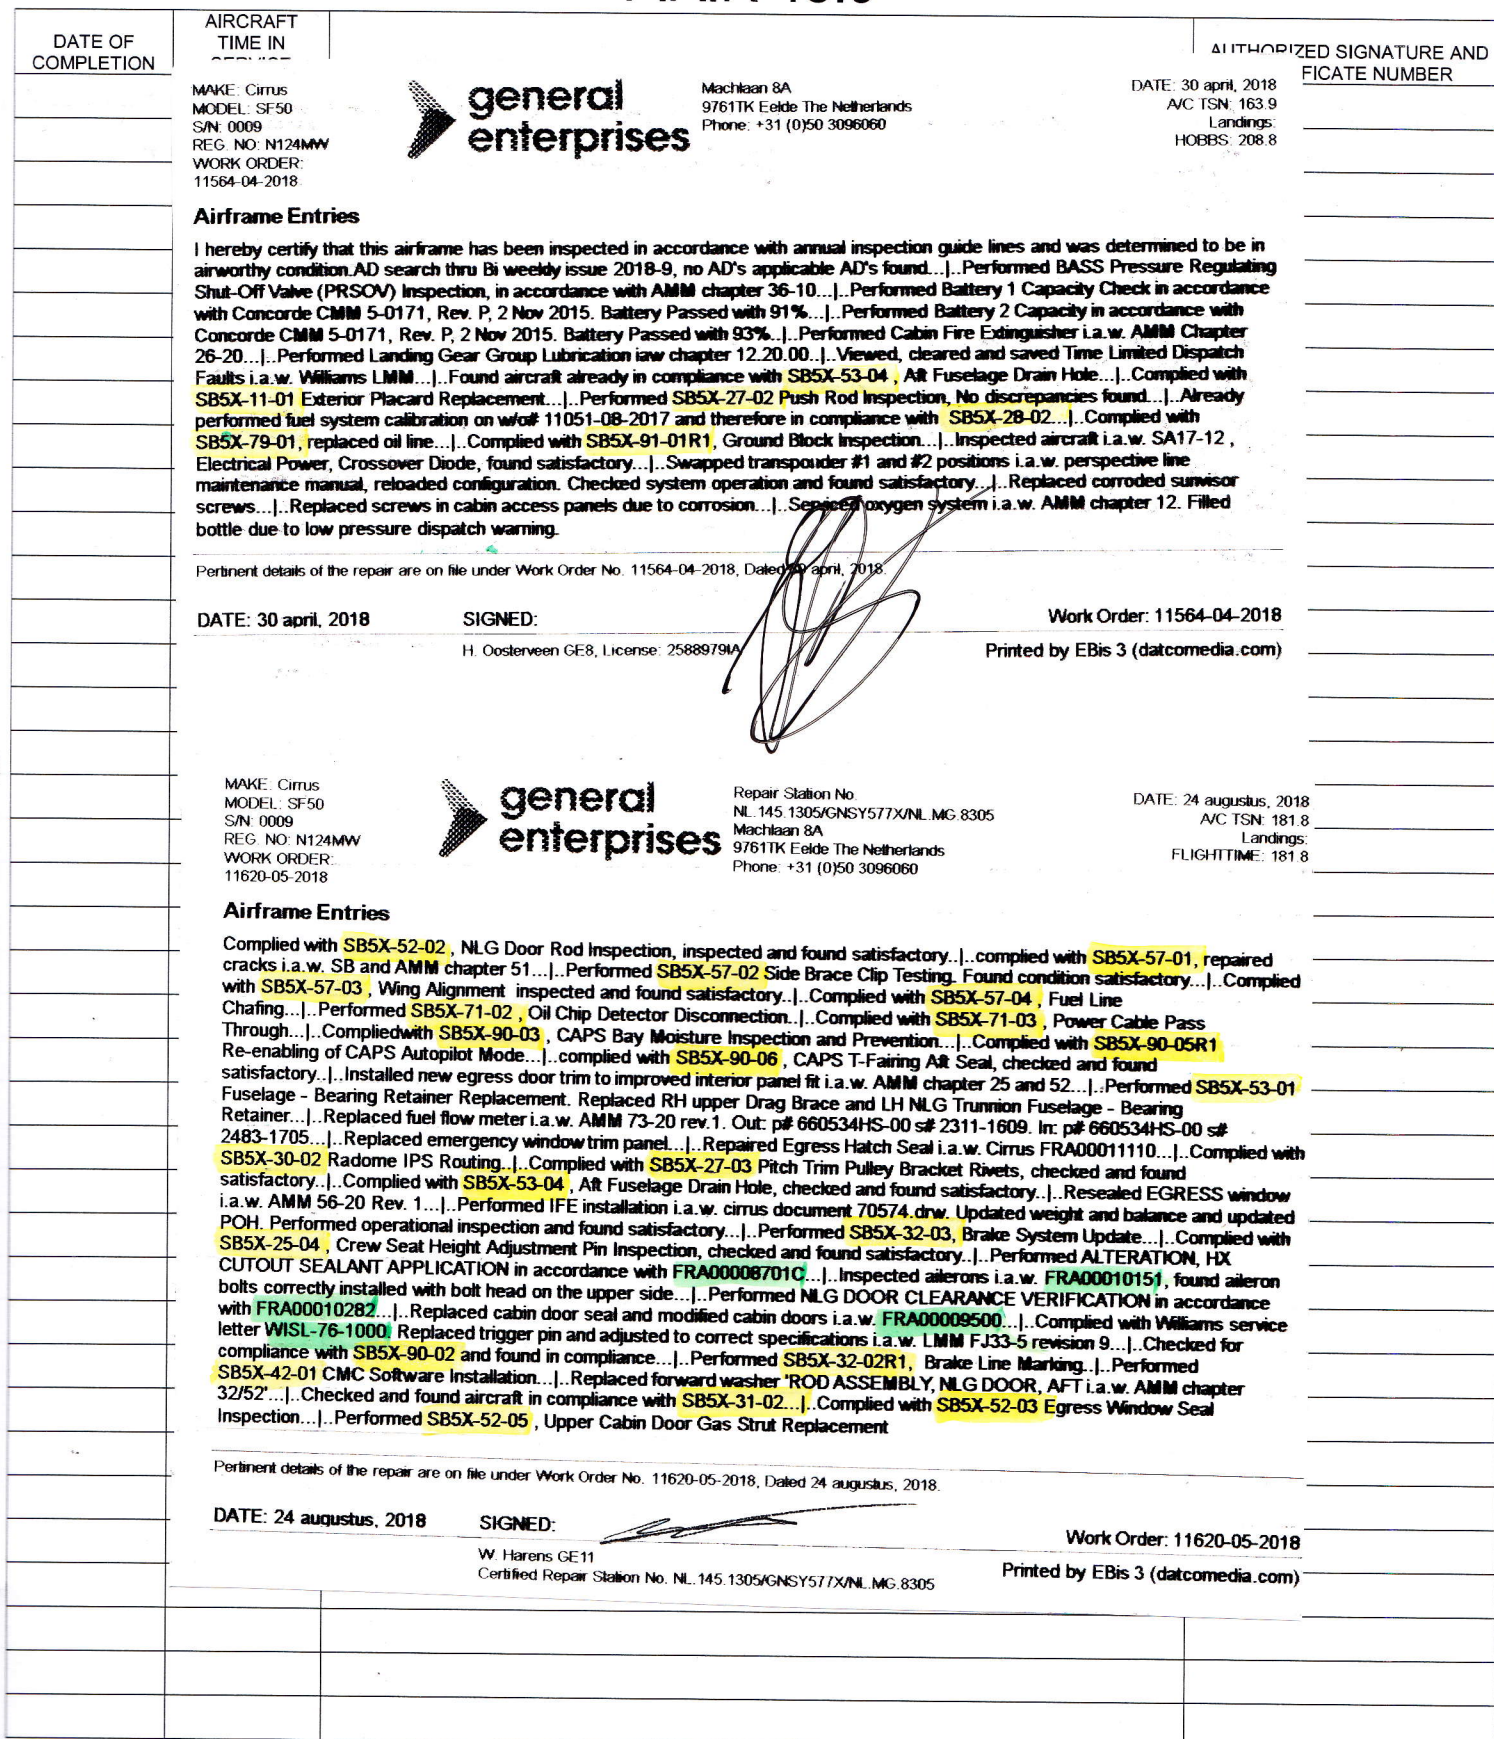 DATE OF
COMPLETION
AIRCRAFT
TIME IN
AUTHORIZED SIGNATURE AND
FICATE NUMBER
MAKE: Cirrus
MODEL: SF50
S/N: 0009
REG. NO: N124MW
WORK ORDER:
11564-04-2018
general
enterprises
Machlaan 8A
9761TK Eelde The Netherlands
Phone: +31 (0)50 3096060
DATE: 30 april, 2018
A/C TSN: 163.9
Landings:
HOBBS: 208.8
Airframe Entries
I hereby certify that this airframe has been inspected in accordance with annual inspection guide lines and was determined to be in
airworthy condition.AD search thru Bi weekly issue 2018-9, no AD's applicable AD's found...|..Performed BASS Pressure Regulating
Shut-Off Valve (PRSOV) Inspection, in accordance with AMM chapter 36-10...|..Performed Battery 1 Capacity Check in accordance
with Concorde CMM 5-0171, Rev. P, 2 Nov 2015. Battery Passed with 91%...|..Performed Battery 2 Capacity in accordance with
Concorde CMM 5-0171, Rev. P, 2 Nov 2015. Battery Passed with 93%..|..Performed Cabin Fire Extinguisher i.a.w. AMM Chapter
26-20...|..Performed Landing Gear Group Lubrication iaw chapter 12.20.00..|..Viewed, cleared and saved Time Limited Dispatch
Faults i.a.w. Williams LMM...|..Found aircraft already in compliance with SB5X-53-04 , Aft Fuselage Drain Hole...|..Complied with
SB5X-11-01 Exterior Placard Replacement...|..Performed SB5X-27-02 Push Rod Inspection, No discrepancies found...|..Already
performed fuel system calibration on w/o# 11051-08-2017 and therefore in compliance with SB5X-28-02...|..Complied with
SB5X-79-01, replaced oil line...|..Complied with SB5X-91-01R1, Ground Block Inspection...|..Inspected aircraft i.a.w. SA17-12 ,
Electrical Power, Crossover Diode, found satisfactory...|..Swapped transpouder #1 and #2 positions i.a.w. perspective line
maintenance manual, reloaded configuration. Checked system operation and found satisfactory...|..Replaced corroded sunvisor
screws...|..Replaced screws in cabin access panels due to corrosion...|..Serviced oxygen system i.a.w. AMM chapter 12. Filled
bottle due to low pressure dispatch warning.
Pertinent details of the repair are on file under Work Order No. 11564-04-2018, Dated april, 2018.
DATE: 30 april, 2018
SIGNED:
Work Order: 11564-04-2018
H. Oosterveen GE8, License: 2588979IA
Printed by EBis 3 (datcomedia.com)
MAKE: Cirrus
MODEL: SF50
S/N: 0009
REG. NO: N124MW
WORK ORDER:
11620-05-2018
general
enterprises
Repair Station No.
NL.145.1305/GNSY577X/NL.MG.8305
Machlaan 8A
9761TK Eelde The Netherlands
Phone: +31 (0)50 3096060
DATE: 24 augustus, 2018
A/C TSN: 181.8
Landings:
FLIGHTTIME: 181.8
Airframe Entries
Complied with SB5X-52-02 , NLG Door Rod Inspection, inspected and found satisfactory..|..complied with SB5X-57-01, repaired
cracks i.a.w. SB and AMM chapter 51...|..Performed SB5X-57-02 Side Brace Clip Testing. Found condition satisfactory...|..Complied
with SB5X-57-03 , Wing Alignment inspected and found satisfactory..|..Complied with SB5X-57-04 , Fuel Line
Chafing...|..Performed SB5X-71-02 , Oil Chip Detector Disconnection..|..Complied with SB5X-71-03 , Power Cable Pass
Through...|..Compliedwith SB5X-90-03 , CAPS Bay Moisture Inspection and Prevention...|..Complied with SB5X-90-05R1
Re-enabling of CAPS Autopilot Mode...|..complied with SB5X-90-06 , CAPS T-Fairing Aft Seal, checked and found
satisfactory..|..Installed new egress door trim to improved interior panel fit i.a.w. AMM chapter 25 and 52...|..Performed SB5X-53-01
Fuselage - Bearing Retainer Replacement. Replaced RH upper Drag Brace and LH NLG Trunnion Fuselage - Bearing
Retainer...|..Replaced fuel flow meter i.a.w. AMM 73-20 rev.1. Out: p# 660534HS-00 s# 2311-1609. In: p# 660534HS-00 s#
2483-1705...|..Replaced emergency window trim panel...|..Repaired Egress Hatch Seal i.a.w. Cirrus FRA00011110...|..Complied with
SB5X-30-02 Radome IPS Routing..|..Complied with SB5X-27-03 Pitch Trim Pulley Bracket Rivets, checked and found
satisfactory..|..Complied with SB5X-53-04 , Aft Fuselage Drain Hole, checked and found satisfactory..|..Resealed EGRESS window
i.a.w. AMM 56-20 Rev. 1...|..Performed IFE installation i.a.w. cirrus document 70574.drw. Updated weight and balance and updated
POH. Performed operational inspection and found satisfactory...|..Performed SB5X-32-03, Brake System Update...|..Complied with
SB5X-25-04 , Crew Seat Height Adjustment Pin Inspection, checked and found satisfactory..|..Performed ALTERATION, HX
CUTOUT SEALANT APPLICATION in accordance with FRA00008701C...|..Inspected ailerons i.a.w. FRA00010151, found aileron
bolts correctly installed with bolt head on the upper side...|..Performed NLG DOOR CLEARANCE VERIFICATION in accordance
with FRA00010282...|..Replaced cabin door seal and modified cabin doors i.a.w. FRA00009500...|..Complied with Williams service
letter WISL-76-1000. Replaced trigger pin and adjusted to correct specifications i.a.w. LMM FJ33-5 revision 9...|..Checked for
compliance with SB5X-90-02 and found in compliance...|..Performed SB5X-32-02R1, Brake Line Marking..|..Performed
SB5X-42-01 CMC Software Installation...|..Replaced forward washer 'ROD ASSEMBLY, NLG DOOR, AFT i.a.w. AMM chapter
32/52'...|..Checked and found aircraft in compliance with SB5X-31-02...|..Complied with SB5X-52-03 Egress Window Seal
Inspection...|..Performed SB5X-52-05 , Upper Cabin Door Gas Strut Replacement
Pertinent details of the repair are on file under Work Order No. 11620-05-2018, Dated 24 augustus, 2018.
DATE: 24 augustus, 2018
SIGNED:
Work Order: 11620-05-2018
W. Harens GE11
Certified Repair Station No. NL.145.1305/GNSY577X/NL.MG.8305
Printed by EBis 3 (datcomedia.com)